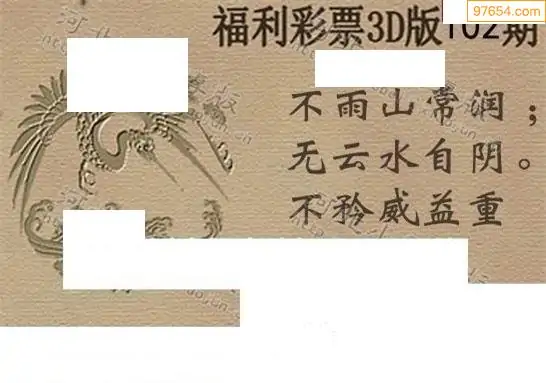 97654.com
福利彩票3D版102期
不雨山常润；
无云水自阴。
不矜威益重